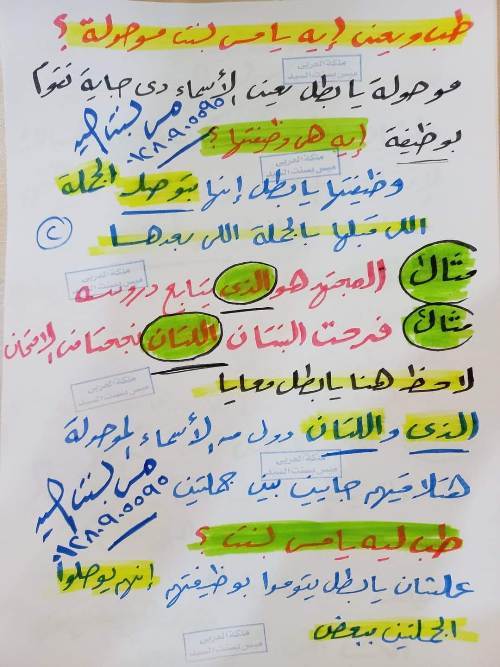 طب ويعني إيه يا مس بسنت موصولة ؟
موصولة يا بطل يعني الأسماء دي جاية تقوم
بوظيفة إيه هي وظيفتها ؟
مس بسنت السيد
وظيفتها يا بطل إنها بتوصل الجملة
اللي قبلها بالجملة اللي بعدها
٢
مثال المجتهد هو الذي يتابع دروسه
مثال فرحت البنتان اللتان نجحتا في الامتحان
لاحظ هنا يا بطل معايا
الذي واللتان دول من الأسماء الموصولة
هتلاقيهم جايين بين جملتين
مس بسنت السيد
طب ليه يا مس بسنت ؟
علشان يا بطل يقوموا بوظيفتهم إنهم يوصلوا
الجملتين ببعض
ملكة العربي
ميس بسنت السيد